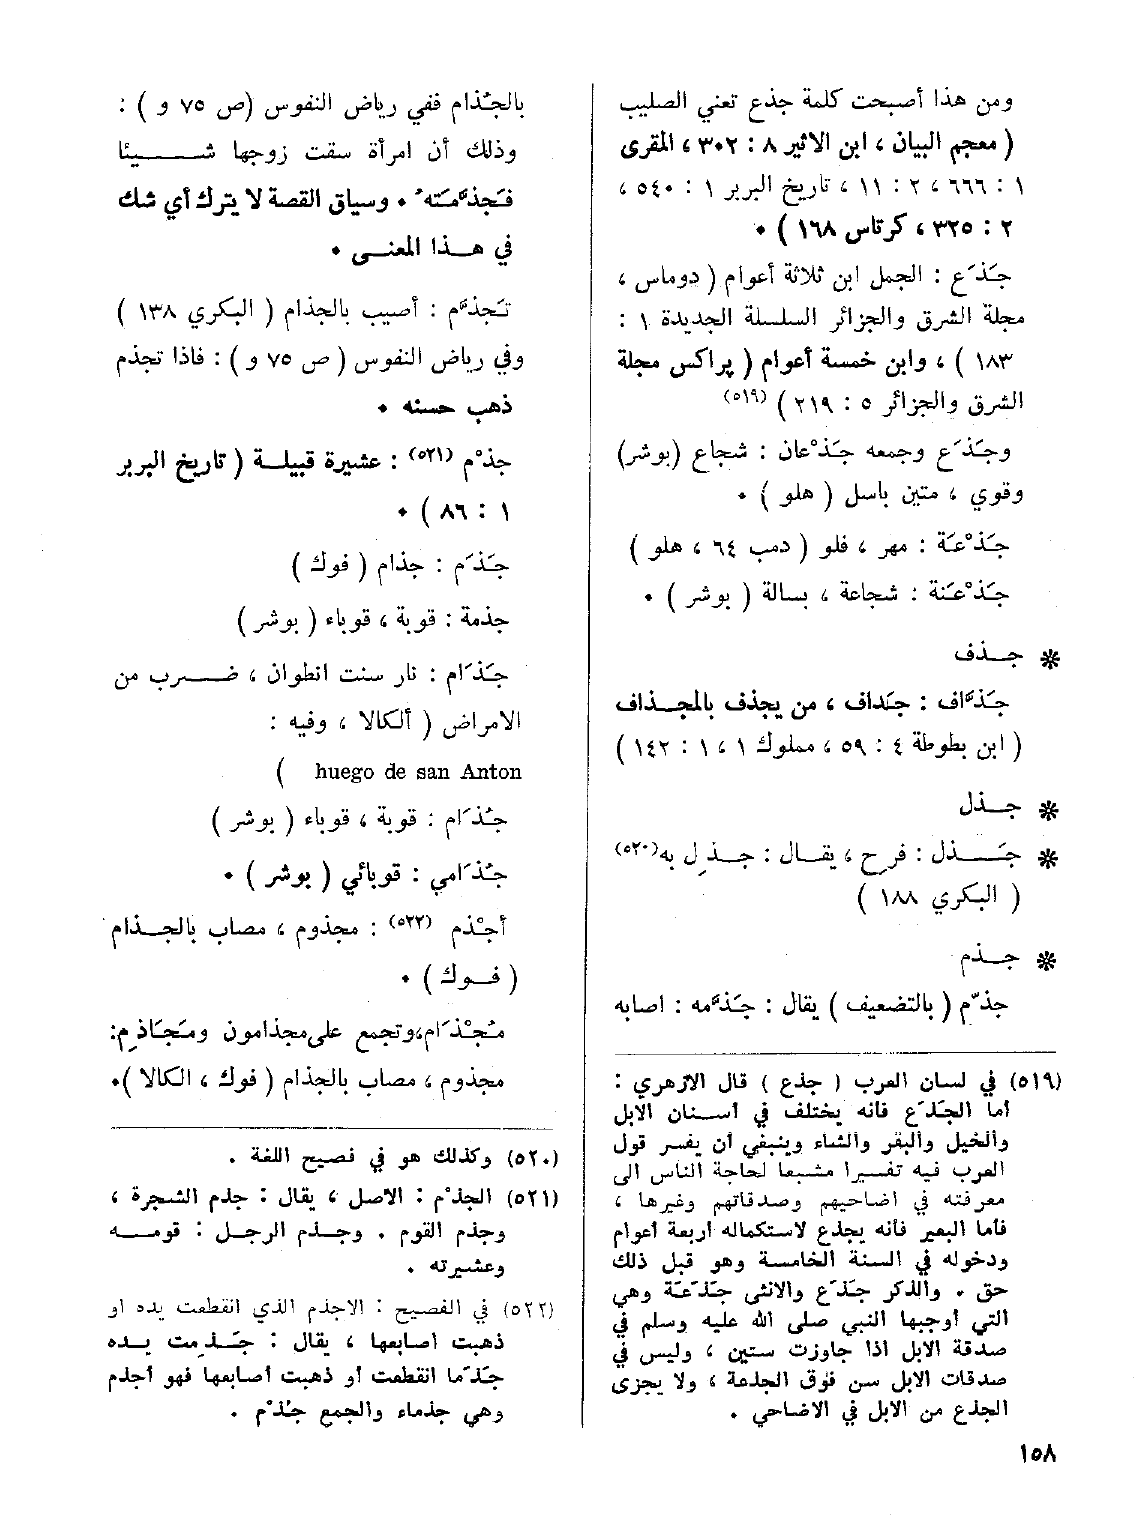 ومن هذا أصبحت كلمة جذع تعني الصليب
( معجم البيان ، ابن الاثير ٨ : ٣٠٢ ، المقرى
١ : ٦٦٦ ، ٢ : ١١ ، تاريخ البربر ١ : ٥٤٠ ،
٢ : ٣٢٥ ، كرتاس ١٦٨ ) ٠
جَذَع : الجمل ابن ثلاثة أعوام ( دوماس ،
مجلة الشرق والجزائر السلسلة الجديدة ١ :
١٨٣ ) ، وابن خمسة أعوام ( پراكس مجلة
الشرق والجزائر ٥ : ٢١٩ ) (٥١٩)
وجَذَع وجمعه جَذْعان : شجاع (بوشر)
وقوي ، متين باسل ( هلو ) ٠
جَذْعَة : مهر ، فلو ( دمب ٦٤ ، هلو )
جَذْعَنة : شجاعة ، بسالة ( بوشر ) ٠
❋ جـذف
جَذَّاف : جَداف ، من يجذف بالمجـذاف
( ابن بطوطة ٤ : ٥٩ ، مملوك ١ ، ١ : ١٤٢ )
❋ جـذل
❋ جَـذل : فرح ، يقـال : جـذِل به(٥٢٠)
( البكري ١٨٨ )
❋ جـذم
جذّم ( بالتضعيف ) يقال : جَذَّمه : اصابه
(٥١٩) في لسان العرب ( جذع ) قال الازهري :
أما الجَذَع فانه يختلف في أسنان الابل
والخيل والبقر والشاء وينبغي أن يفسر قول
العرب فيه تفسيرا مشبعا لحاجة الناس الى
معرفته في اضاحيهم وصدقاتهم وغيرها ،
فأما البعير فانه يجذع لاستكماله أربعة أعوام
ودخوله في السنة الخامسة وهو قبل ذلك
حق ٠ والذكر جَذَع والانثى جَذَعَة وهي
التي أوجبها النبي صلى الله عليه وسلم في
صدقة الابل اذا جاوزت ستين ، وليس في
صدقات الابل سن فوق الجذعة ، ولا يجزى
الجذع من الابل في الاضاحي ٠
بالجُذام ففي رياض النفوس (ص ٧٥ و ) :
وذلك أن امرأة سقت زوجها شـيئا
فـجَذَّمَتْه ٠ وسياق القصة لا يترك أي شك
في هـذا المعنـى ٠
تَجذَّم : أصيب بالجذام ( البكري ١٣٨ )
وفي رياض النفوس ( ص ٧٥ و ) : فاذا تجذم
ذهب حسنه ٠
جذْم (٥٢١) : عشيرة قبيلـة ( تاريخ البربر
١ : ٨٦ ) ٠
جَذَم : جذام ( فوك )
جذمة : قوبة ، قوباء ( بوشر )
جَذَام : نار سنت انطوان ، ضـرب من
الامراض ( ألكالا ، وفيه :
huego de san Anton )
جُذَام : قوبة ، قوباء ( بوشر )
جُذَامي : قوبائي ( بوشر ) ٠
أجْذم (٥٢٢) : مجذوم ، مصاب بالجـذام
( فـوك ) ٠
مُجْذَام،وتجمع على مجذامون ومَجَاذِم:
مجذوم ، مصاب بالجذام ( فوك ، الكالا )٠
(٥٢٠) وكذلك هو في فصيح اللغة ٠
(٥٢١) الجذْم : الاصل ، يقال : جذم الشجرة ،
وجذم القوم ٠ وجـذم الرجـل : قومـه
وعشيرته ٠
(٥٢٢) في الفصيح : الاجذم الذي انقطعت يده او
ذهبت أصابعها ، يقال : جَـذِمت يـده
جَذَما انقطعت أو ذهبت أصابعها فهو أجذم
وهي جذماء والجمع جُذْم ٠
١٥٨